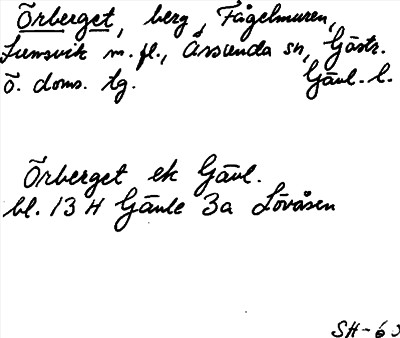 Örberget, berg, Fågelmuren,
Lumsvik m. fl., Årsunda sn, Gästr.
ö. doms. tg. Gävl. l.
Örberget ek Gävl.
bl. 13 H Gävle 3a Lövåsen
SH-63